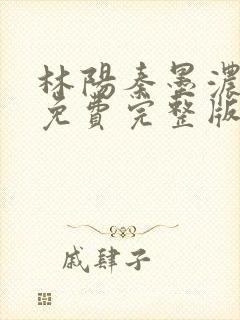 林陽秦墨濃
免費完整版
戚肆子